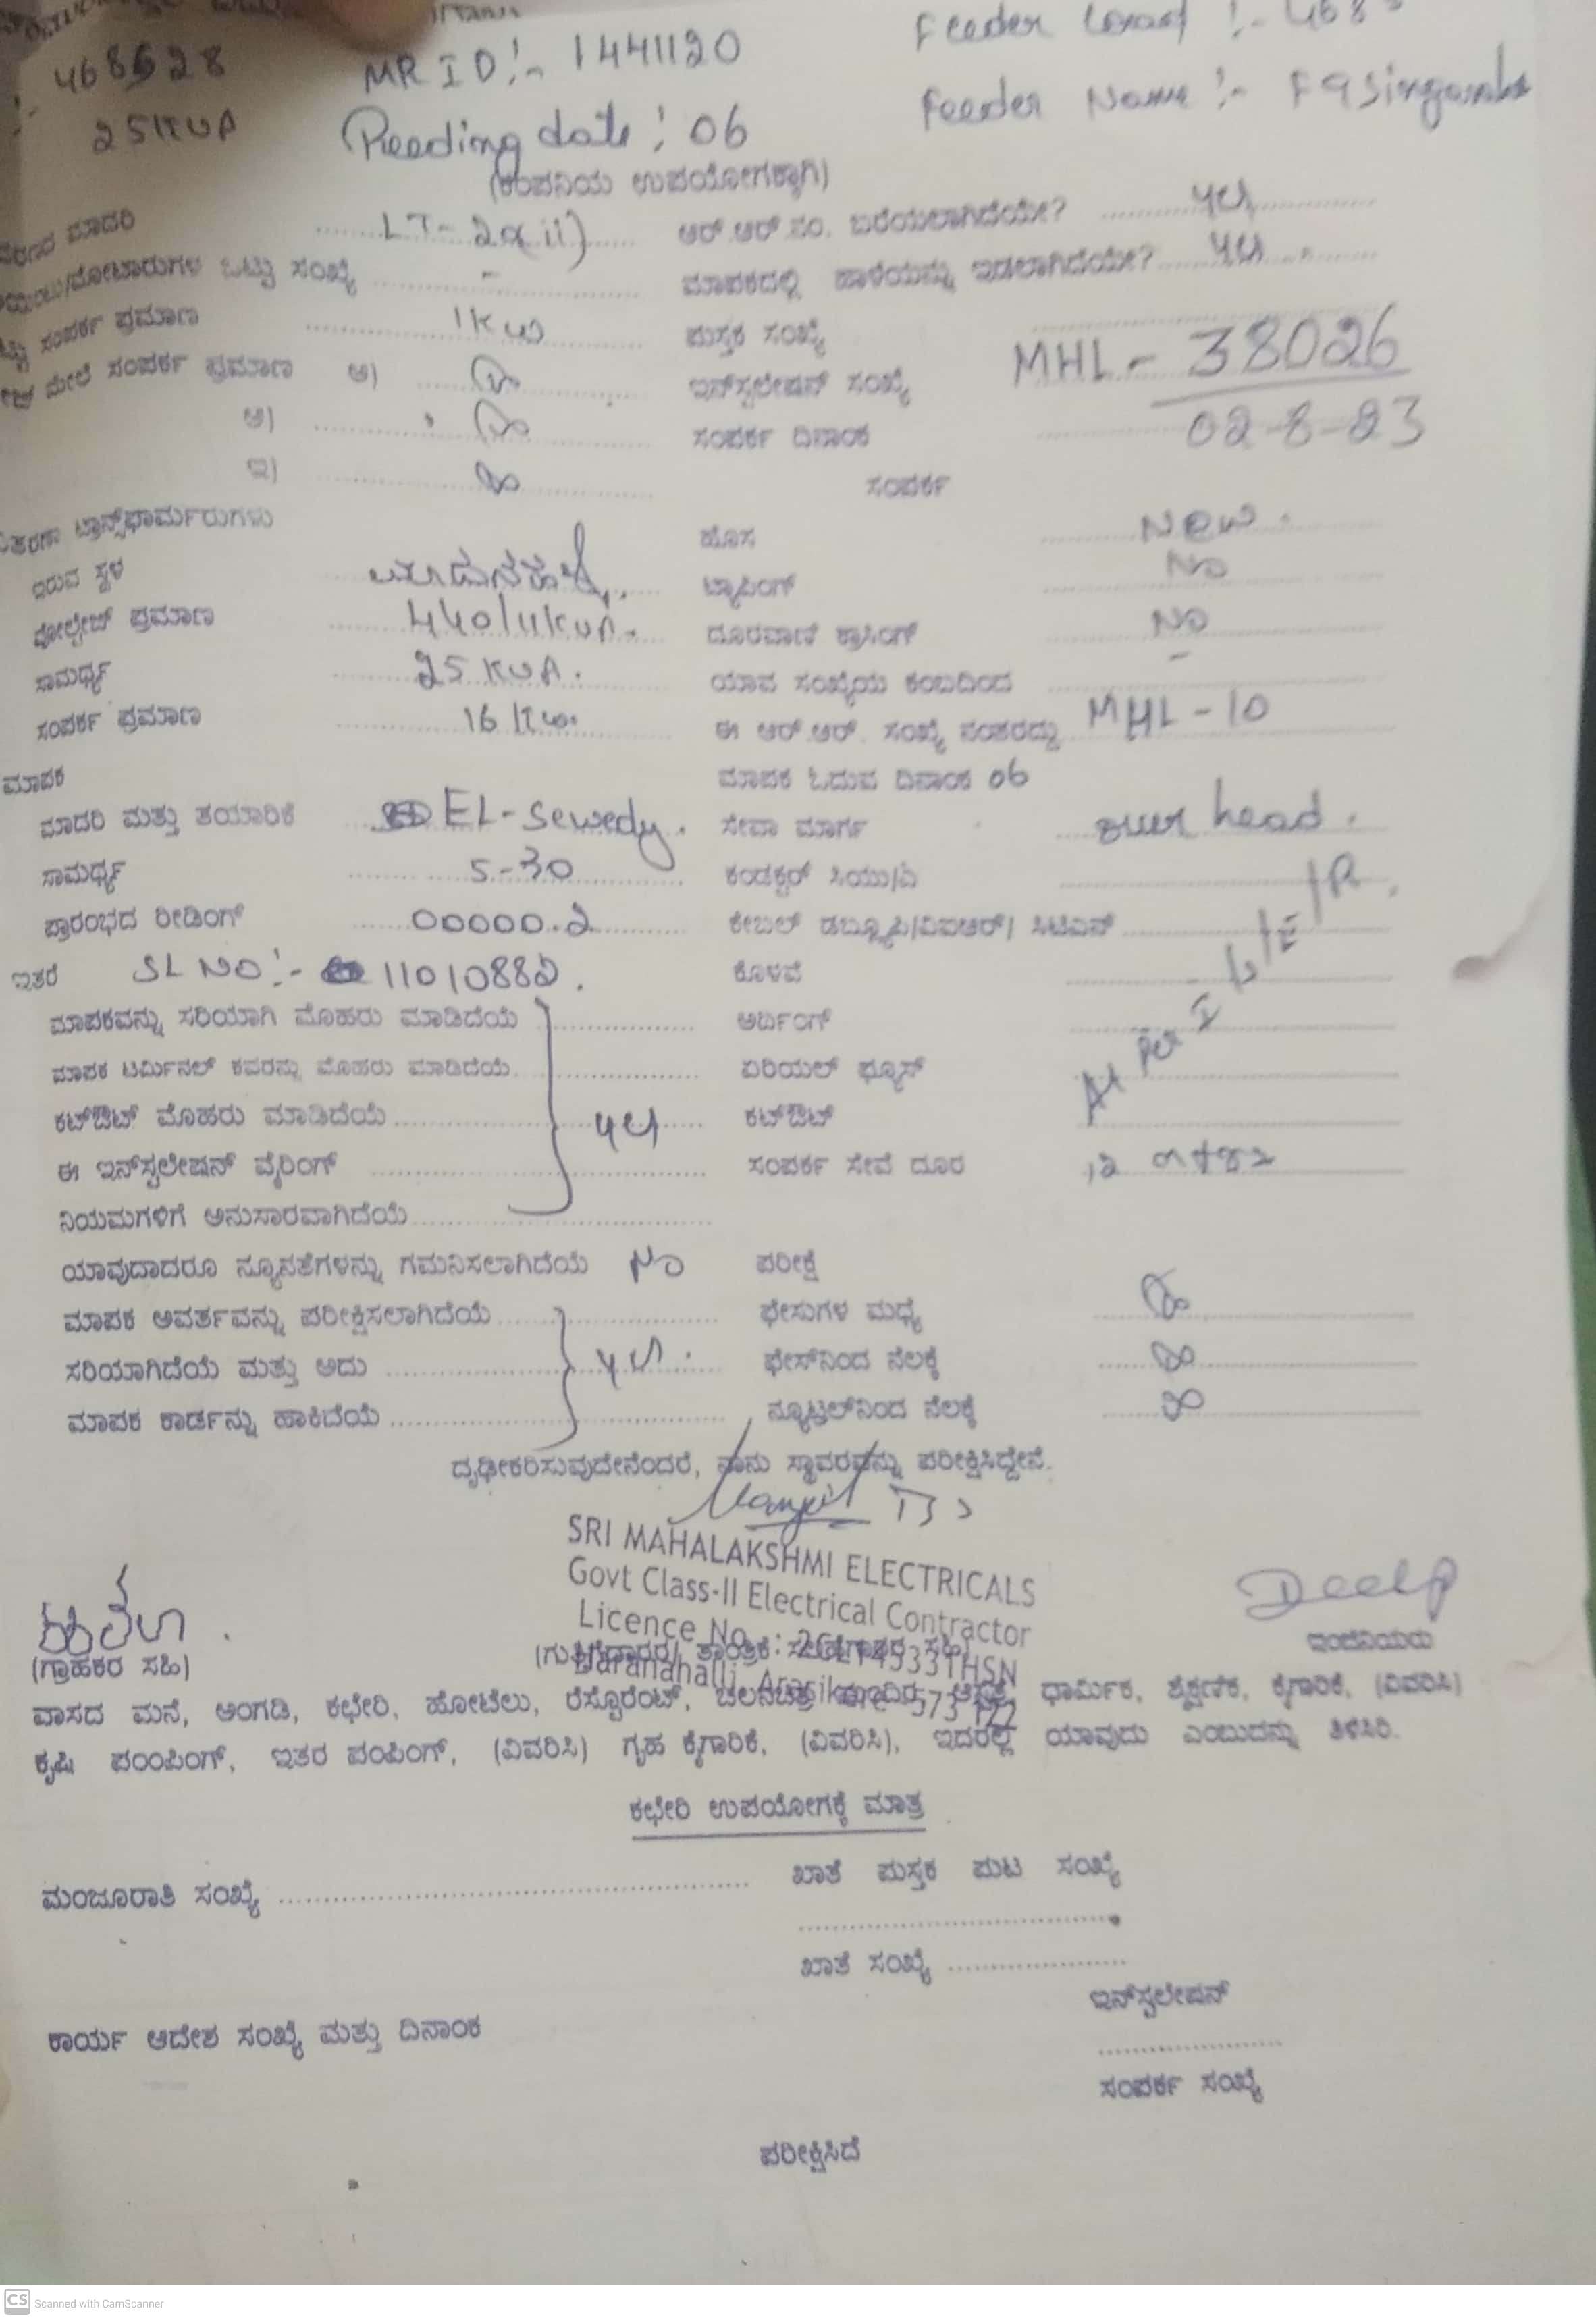 468628 MR ID:- 1441120 Feeder :- 468
25KVA Reading date: 06 Feeder Name :- F9
(ಕಂಪನಿಯ ಉಪಯೋಗಕ್ಕಾಗಿ)
ಮಾದರಿ LT- 2a(ii) ಆರ್.ಆರ್.ನಂ. ಬರೆಯಲಾಗಿದೆಯೇ? yes
ಒಟ್ಟು ಸಂಖ್ಯೆ - ಮಾಪಕದಲ್ಲಿ ಹಾಳೆಯನ್ನು ಇಡಲಾಗಿದೆಯೇ? yes
ಸಂಪರ್ಕ ಪ್ರಮಾಣ 1Kw ಪುಸ್ತಕ ಸಂಖ್ಯೆ
ಮೇಲೆ ಸಂಪರ್ಕ ಪ್ರಮಾಣ ಅ) ಇನ್‌ಸ್ಟಲೇಷನ್ ಸಂಖ್ಯೆ MHL- 38026
ಆ) ಸಂಪರ್ಕ ದಿನಾಂಕ 02-8-23
ಇ) ಸಂಪರ್ಕ
ಟ್ರಾನ್ಸ್‌ಫಾರ್ಮರುಗಳು ಹೊಸ New.
ಇರುವ ಸ್ಥಳ ಟ್ಯಾಪಿಂಗ್ No
ವೋಲ್ಟೇಜ್ ಪ್ರಮಾಣ 440/11KVA. ದೂರವಾಣಿ ಕ್ರಾಸಿಂಗ್ No
ಸಾಮರ್ಥ್ಯ 25 KVA. ಯಾವ ಸಂಖ್ಯೆಯ ಕಂಬದಿಂದ -
ಸಂಪರ್ಕ ಪ್ರಮಾಣ 16 Kw. ಈ ಆರ್.ಆರ್. ಸಂಖ್ಯೆ ನಂತರದ್ದು MHL-10
ಮಾಪಕ ಮಾಪಕ ಓದುವ ದಿನಾಂಕ 06
ಮಾದರಿ ಮತ್ತು ತಯಾರಿಕೆ EL-Sewedy. ಸೇವಾ ಮಾರ್ಗ over head.
ಸಾಮರ್ಥ್ಯ 5-30 ಕಂಡಕ್ಟರ್ ಸಿಯು/ಏ
ಪ್ರಾರಂಭದ ರೀಡಿಂಗ್ 00000.2 ಕೇಬಲ್ ಡಬ್ಲ್ಯೂಪಿ/ವಿಐಆರ್/ ಸಿಟಿಎಸ್
ಇತರೆ SL NO:- 11010882. ಕೊಳವೆ As per I/E/R.
ಮಾಪಕವನ್ನು ಸರಿಯಾಗಿ ಮೊಹರು ಮಾಡಿದೆಯೆ ಅರ್ಥಿಂಗ್
ಮಾಪಕ ಟರ್ಮಿನಲ್ ಕವರನ್ನು ಮೊಹರು ಮಾಡಿದೆಯೆ ಏರಿಯಲ್ ಫ್ಯೂಸ್
ಕಟ್‌ಔಟ್ ಮೊಹರು ಮಾಡಿದೆಯೆ yes ಕಟ್‌ಔಟ್
ಈ ಇನ್‌ಸ್ಟಲೇಷನ್ ವೈರಿಂಗ್ ಸಂಪರ್ಕ ಸೇವೆ ದೂರ
ನಿಯಮಗಳಿಗೆ ಅನುಸಾರವಾಗಿದೆಯೆ
ಯಾವುದಾದರೂ ನ್ಯೂನತೆಗಳನ್ನು ಗಮನಿಸಲಾಗಿದೆಯೆ No ಪರೀಕ್ಷೆ
ಮಾಪಕ ಅವರ್ತವನ್ನು ಪರೀಕ್ಷಿಸಲಾಗಿದೆಯೆ ಫೇಸುಗಳ ಮಧ್ಯೆ
ಸರಿಯಾಗಿದೆಯೆ ಮತ್ತು ಅದು yes. ಫೇಸ್‌ನಿಂದ ನೆಲಕ್ಕೆ
ಮಾಪಕ ಕಾರ್ಡನ್ನು ಹಾಕಿದೆಯೆ ನ್ಯೂಟ್ರಲ್‌ನಿಂದ ನೆಲಕ್ಕೆ
ದೃಢೀಕರಿಸುವುದೇನೆಂದರೆ, ನಾನು ಸ್ಥಾವರವನ್ನು ಪರೀಕ್ಷಿಸಿದ್ದೇನೆ.
SRI MAHALAKSHMI ELECTRICALS
Govt Class-II Electrical Contractor
Licence No. :
Haranahalli, Arasikere 573 122
(ಗ್ರಾಹಕರ ಸಹಿ) ಇಂಜಿನಿಯರು
ವಾಸದ ಮನೆ, ಅಂಗಡಿ, ಕಛೇರಿ, ಹೋಟೆಲು, ರೆಸ್ಟೊರೆಂಟ್, ಚಲನಚಿತ್ರ ಮಂದಿರ, ಆಸ್ಪತ್ರೆ, ಧಾರ್ಮಿಕ, ಶೈಕ್ಷಣಿಕ, ಕೈಗಾರಿಕೆ, (ವಿವರಿಸಿ)
ಕೃಷಿ ಪಂಂಪಿಂಗ್, ಇತರ ಪಂಪಿಂಗ್, (ವಿವರಿಸಿ) ಗೃಹ ಕೈಗಾರಿಕೆ, (ವಿವರಿಸಿ), ಇದರಲ್ಲಿ ಯಾವುದು ಎಂಬುದನ್ನು ತಿಳಿಸಿರಿ.
ಕಛೇರಿ ಉಪಯೋಗಕ್ಕೆ ಮಾತ್ರ
ಮಂಜೂರಾತಿ ಸಂಖ್ಯೆ ಖಾತೆ ಪುಸ್ತಕ ಪುಟ ಸಂಖ್ಯೆ
ಖಾತೆ ಸಂಖ್ಯೆ
ಇನ್‌ಸ್ಟಲೇಷನ್
ಕಾರ್ಯ ಆದೇಶ ಸಂಖ್ಯೆ ಮತ್ತು ದಿನಾಂಕ
ಸಂಪರ್ಕ ಸಂಖ್ಯೆ
ಪರೀಕ್ಷಿಸಿದೆ
CS Scanned with CamScanner